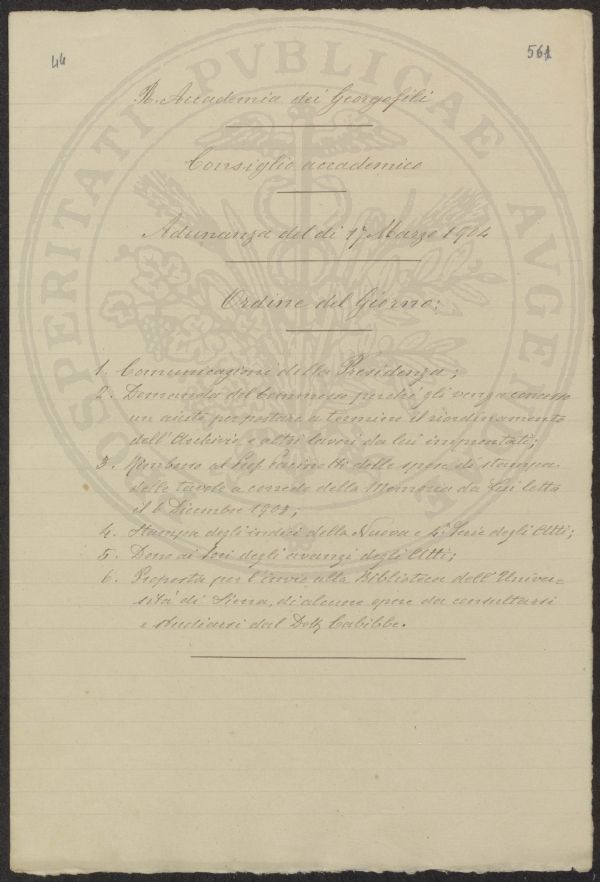 44
561
R. Accademia dei Georgofili
Consiglio accademico
Adunanza del dì 17 Marzo 1904
Ordine del Giorno:
1. Comunicazioni della Presidenza;
2. Domanda del Commesso perché gli venga concesso
un aiuto per portare a termine il riordinamento
dell'Archivio, e altri lavori da lui impiantati;
3. Rimborso al Prof. Pacinotti delle spese di stampa
delle tavole a corredo della Memoria da Lui letta
il 6 Dicembre 1903;
4. Stampa degli indici della Nuova e 4ª Serie degli Atti;
5. Dono ai Soci degli avanzi degli Atti;
6. Proposta per l'invio alla Biblioteca dell'Univer=
sità di Siena, di alcune opere da consultarsi
e studiarsi dal Dott. Cabibbe.
PROSPERITATI PVBLICAE AVGENDAE